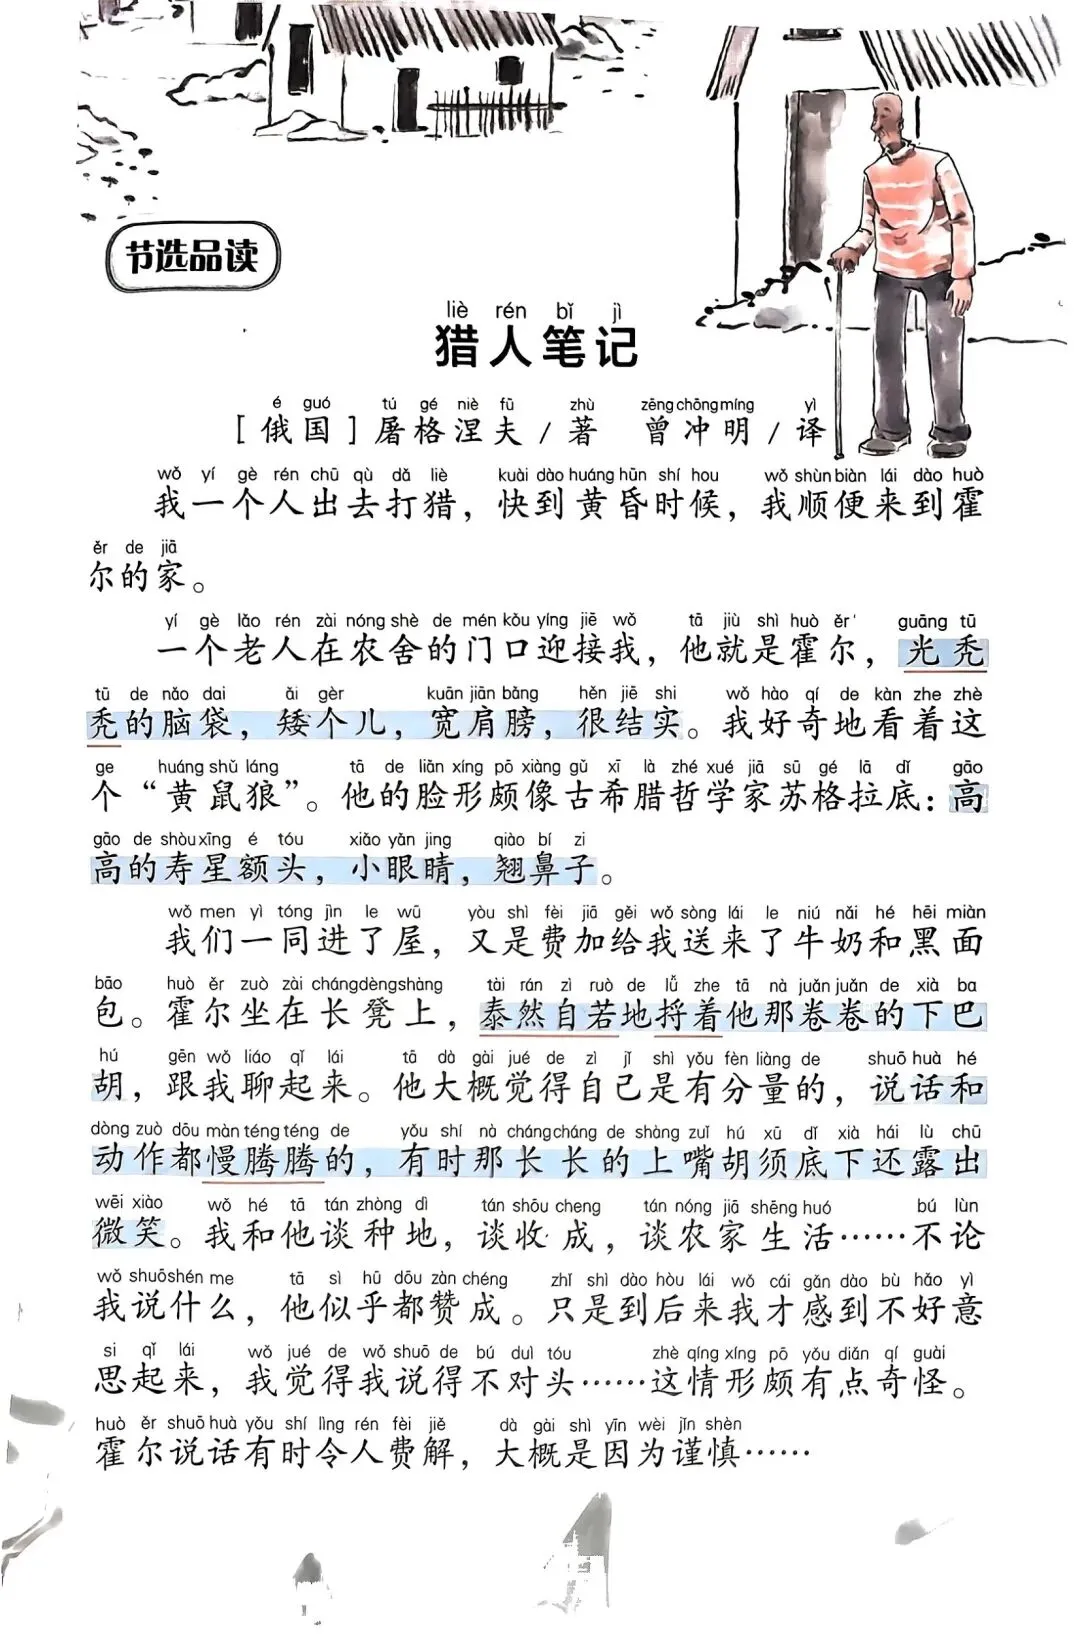 节选品读
liè rén bǐ jì
猎人笔记
é guó tú gé niè fū zhù zēng chōng míng yì
[俄国]屠格涅夫/著 曾冲明/译
wǒ yí gè rén chū qù dǎ liè kuài dào huáng hūn shí hou wǒ shùn biàn lái dào huò
我一个人出去打猎，快到黄昏时候，我顺便来到霍
ěr de jiā
尔的家。
yí gè lǎo rén zài nóng shè de mén kǒu yíng jiē wǒ tā jiù shì huò ěr guāng tū
一个老人在农舍的门口迎接我，他就是霍尔，光秃
tū de nǎo dai ǎi gèr kuān jiān bǎng hěn jiē shi wǒ hào qí de kàn zhe zhè
秃的脑袋，矮个儿，宽肩膀，很结实。我好奇地看着这
ge huáng shǔ láng tā de liǎn xíng pō xiàng gǔ xī là zhé xué jiā sū gé lā dǐ gāo
个“黄鼠狼”。他的脸形颇像古希腊哲学家苏格拉底：高
gāo de shòu xīng é tóu xiǎo yǎn jing qiào bí zi
高的寿星额头，小眼睛，翘鼻子。
wǒ men yì tóng jìn le wū yòu shì fèi jiā gěi wǒ sòng lái le niú nǎi hé hēi miàn
我们一同进了屋，又是费加给我送来了牛奶和黑面
bāo huò ěr zuò zài cháng dèng shàng tài rán zì ruò de lǚ zhe tā nà juǎn juǎn de xià ba
包。霍尔坐在长凳上，泰然自若地捋着他那卷卷的下巴
hú gēn wǒ liáo qǐ lái tā dà gài jué de zì jǐ shì yǒu fèn liàng de shuō huà hé
胡，跟我聊起来。他大概觉得自己是有分量的，说话和
dòng zuò dōu màn téng téng de yǒu shí nà cháng cháng de shàng zuǐ hú xū dǐ xià hái lù chū
动作都慢腾腾的，有时那长长的上嘴胡须底下还露出
wēi xiào wǒ hé tā tán zhòng dì tán shōu cheng tán nóng jiā shēng huó bú lùn
微笑。我和他谈种地，谈收成，谈农家生活……不论
wǒ shuō shén me tā sì hū dōu zàn chéng zhǐ shì dào hòu lái wǒ cái gǎn dào bù hǎo yì
我说什么，他似乎都赞成。只是到后来我才感到不好意
si qǐ lái wǒ jué de wǒ shuō de bú duì tóu zhè qíng xíng pō yǒu diǎn qí guài
思起来，我觉得我说得不对头……这情形颇有点奇怪。
huò ěr shuō huà yǒu shí lìng rén fèi jiě dà gài shì yīn wèi jǐn shèn
霍尔说话有时令人费解，大概是因为谨慎……